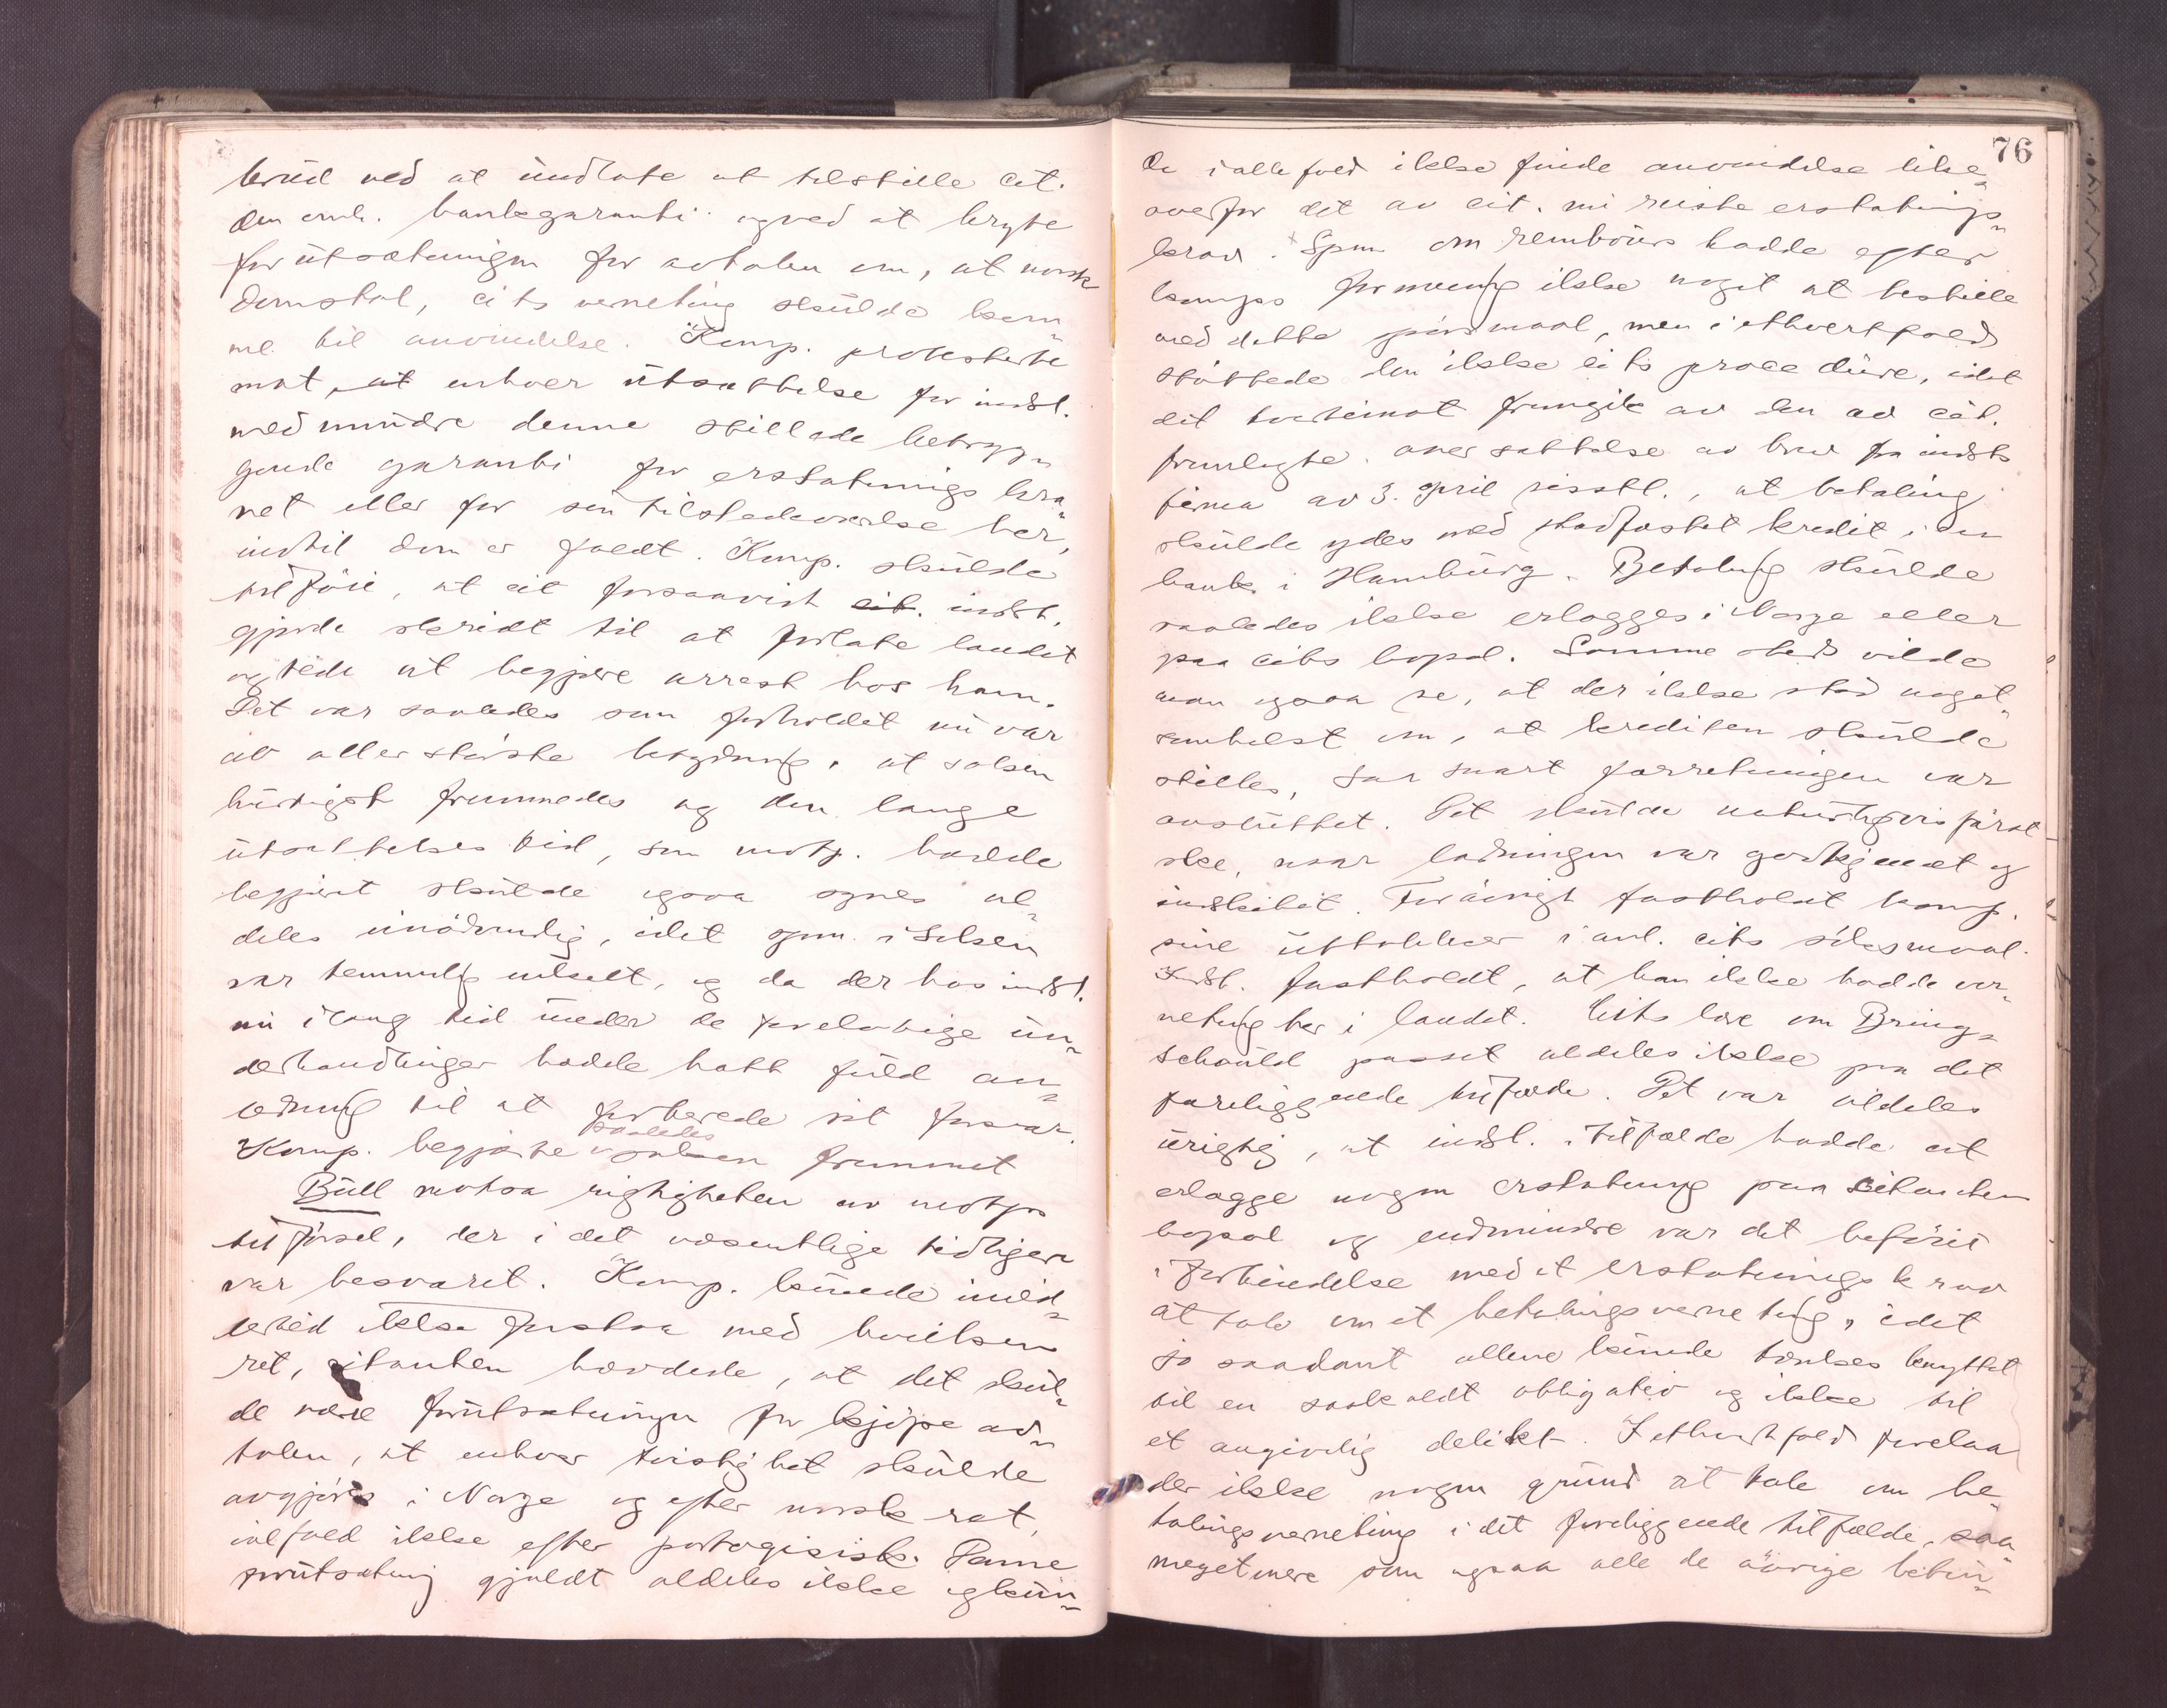 brud ved at undlate at tilstille cit.
den omh. bankgaranti og ved at bryte
forutsætningen for avtalen om, at norsk
domstol, cits verneting skulde kom-
me til anvendelse. Komp. protesterte
mot, at enhver utsættelse for indst.
medmindre denne stillede betryg-
gende garanti for erstatningskra-
vet eller for sin tilstedeværelse her,
indtil dom er faldt. Komp. skulde
tilföie, at cit forsaavidt cit. indst.
gjorde skridt til at forlate landet
agtede at begjære arrest hos ham.
Det var saaledes som forholdet nu var
av allerstörste betydning, at saken
hurtigst fremmedes og den lange
utsættelsestid, som motp. hadde
begjært skulde ogsaa synes al-
deles unödvendig, idet spm. i saken
var temmelig enkelt, og da der hos indst.
nu i lang tid under de forelöbige un-
derhandlinger hadde hatt fuld an-
ledning til at forberede sit forsvar.
Komp. begjærte saaledes saken fremmet
Bull motsa rigtigheten av motps
tilförsel, der i det væsentlige tidligere
var besvaret. Komp. kunde imid-
lertid ikke forstaa med hvilken
ret, citanten hævdede, at det skul-
de være forutsætningen for kjöpeav-
talen, at enhver tvistighet skulde
avgjöres i Norge og efter norsk ret,
ialfald ikke efter portugisisk. Denne
forutsætning gjaldt aldeles ikke og kun-
76
de i alle fald ikke finde anvendelse like-
overfor det av cit. nu reiste erstatnings-
krav. Spm om rembours hadde efter
komps formening ikke noget at bestille
med dette spörsmaal, men i ethvert fald
støttede den ikke cits procedure, idet
det tvertimot fremgik av den av cit.
fremlagte oversættelse av brev fra indsts
firma av 3. april sisstl., at betaling
skulde ydes med stadfæstet kredit i en
bank i Hamburg. Betaling skulde
saaledes ikke erlægges i Norge eller
paa cits bopæl. Samme sted vilde
man ogsaa se, at der ikke stod noget-
somhelst om, at krediten skulde
stilles, saa snart forretningen var
avsluttet. Det skulde naturligvis först
ske, naar ladningen var godkjendt og
indskibet. Forövrigt fastholdt komp.
sine uttalelser i anl. cits söksmaal.
Indst. fastholdt, at han ikke hadde ver-
neting her i landet. Cits lære om Bring-
schuld passet aldeles ikke paa det
foreliggende tilfælde. Det var aldeles
urigtig, at indst. i tilfælde hadde at
erlægge nogen erstatning paa citanten
bopæl og endmindre var det beföiet
i forbindelse med et erstatningskrav
at tale om et betalingsverneting, idet
jo saadant allene kunde tænkes knyttet
til en saakaldt obligatio og ikke til
et angivelig delikt. I ethvert fald forelaa
der ikke nogen grund at tale om be-
talingsverneting i det foreliggende tilfælde, saa-
meget mere som ogsaa alle de övrige betin-